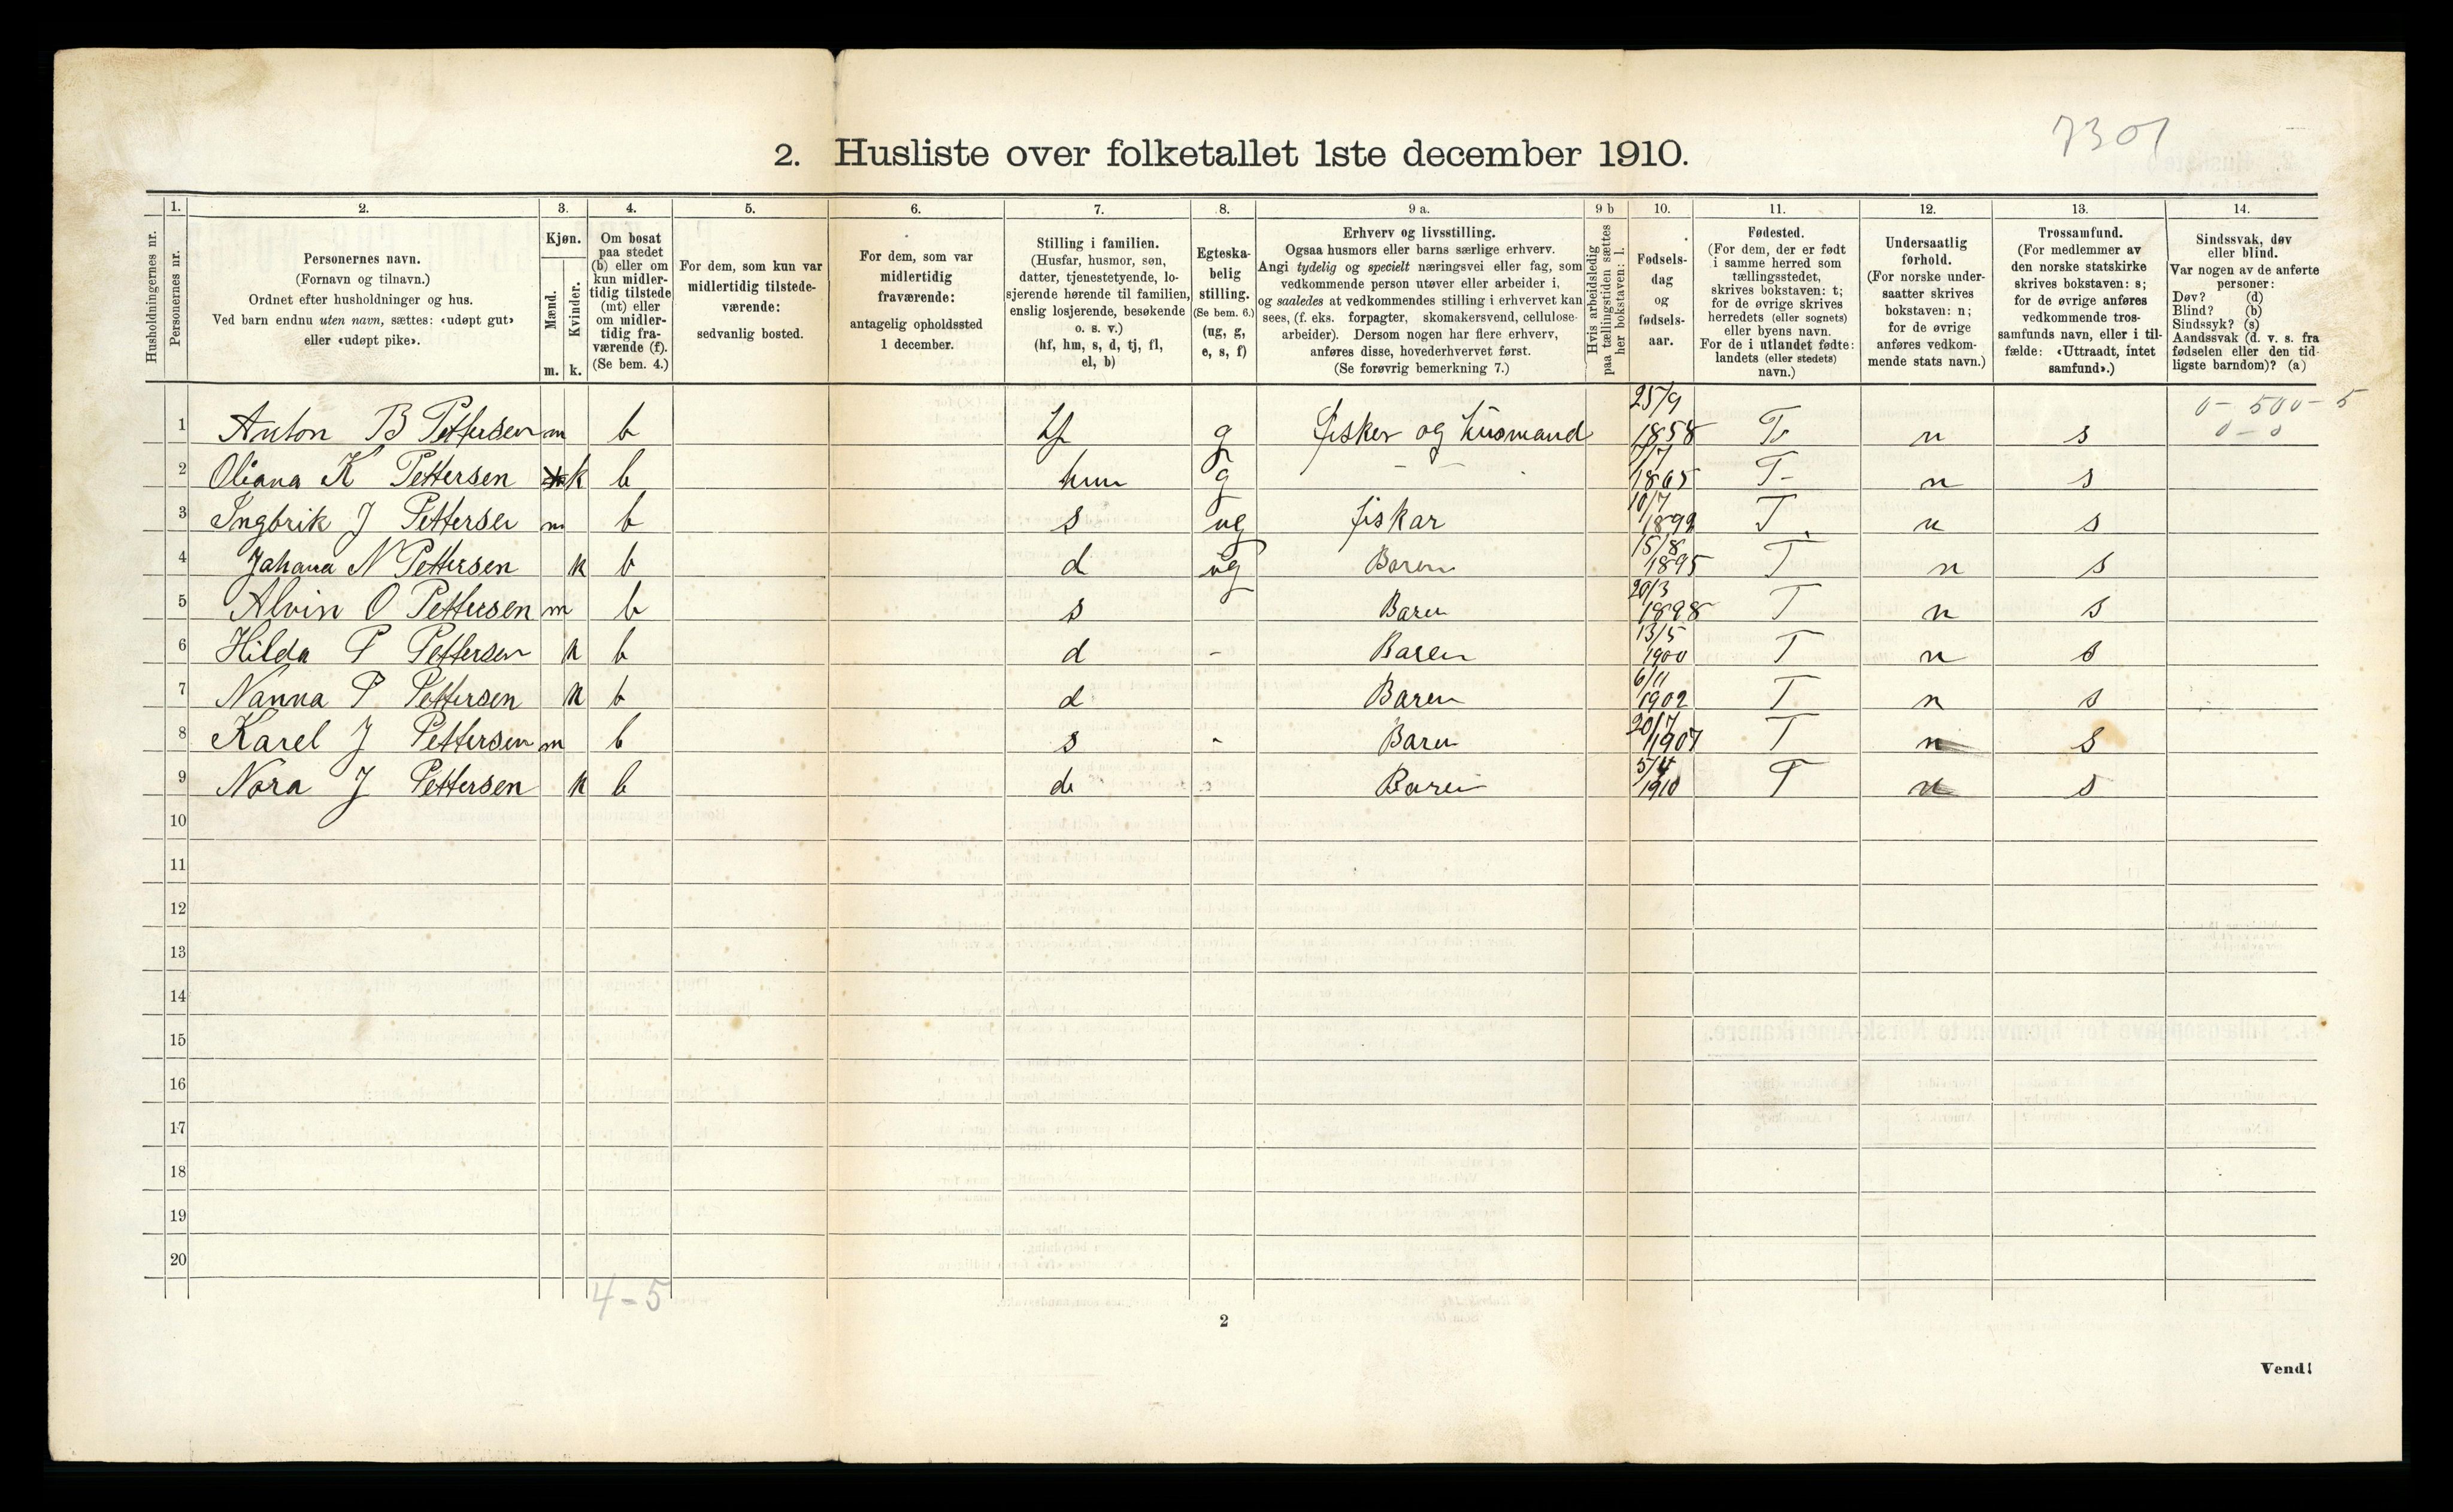 7301
2. Husliste over folketallet 1ste december 1910.
Husholdningernes nr.
1.
Personernes nr.
2.
Personernes navn.
(Fornavn og tilnavn.)
Ordnet efter husholdninger og hus.
Ved barn endnu uten navn, sættes: «udøpt gut»
eller «udøpt pike».
3.
Kjøn.
Mænd.
Kvinder.
m. k.
4.
Om bosat
paa stedet
(b) eller om
kun midler-
tidig tilstede
(mt) eller
om midler-
tidig fra-
værende (f).
(Se bem. 4.)
5.
For dem, som kun var
midlertidig tilstede-
værende:
sedvanlig bosted.
6.
For dem, som var
midlertidig
fraværende:
antagelig opholdssted
1 december.
7.
Stilling i familien.
(Husfar, husmor, søn,
datter, tjenestetyende, lo-
sjerende hørende til familien,
enslig losjerende, besøkende
o. s. v.)
(hf, hm, s, d, tj, fl,
el, b)
8.
Egteska-
belig
stilling.
(Se bem. 6.)
(ug, g,
e, s, f)
9 a.
Erhverv og livsstilling.
Ogsaa husmors eller barns særlige erhverv.
Angi tydelig og specielt næringsvei eller fag, som
vedkommende person utøver eller arbeider i,
og saaledes at vedkommendes stilling i erhvervet kan
sees, (f. eks. forpagter, skomakersvend, cellulose-
arbeider). Dersom nogen har flere erhverv,
anføres disse, hovederhvervet først.
(Se forøvrig bemerkning 7.)
9 b
Hvis arbeidsledig
paa tællingstiden sættes
her bokstaven: l.
10.
Fødsels-
dag
og
fødsels-
aar.
11.
Fødested.
(For dem, der er født
i samme herred som
tællingsstedet,
skrives bokstaven: t;
for de øvrige skrives
herredets (eller sognets)
eller byens navn.
For de i utlandet fødte:
landets (eller stedets)
navn.)
12.
Undersaatlig
forhold.
(For norske under-
saatter skrives
bokstaven: n;
for de øvrige
anføres vedkom-
mende stats navn.)
13.
Trossamfund.
(For medlemmer av
den norske statskirke
skrives bokstaven: s;
for de øvrige anføres
vedkommende tros-
samfunds navn, eller i til-
fælde: «Uttraadt, intet
samfund».)
14.
Sindssvak, døv
eller blind.
Var nogen av de anførte
personer:
Døv? (d)
Blind? (b)
Sindssyk? (s)
Aandssvak (d. v. s. fra
fødselen eller den tid-
ligste barndom)? (a)
0 - 500 - 5
0 - 0
1 Anton B Pettersen m b hf g fisker og husmand 25/9 1858 T n s
2 Oliana K Pettersen k b hm g - - 7/7 1865 T- n s
3 Ingbrik J Petterser m b s ug fiskar 10/7 1892 T n s
4 Johana N Pettersen k b d ug Baren 15/8 1895 T n s
5 Alvin O Pettersen m b s Baren 20/3 1898 T n s
6 Hilda P Pettersen k b d - Baren 13/5 1900 T n s
7 Nanna P Pettersen k b d Baren 6/11 1902 T n s
8 Karel J Pettersen m b s - Baren 20/7 1907 T n s
9 Nora J Pettersen k b d Baren 5/4 1910 T n s
10
11
12
13
14
15
16
17
18
19
20
4-5
2
Vend!